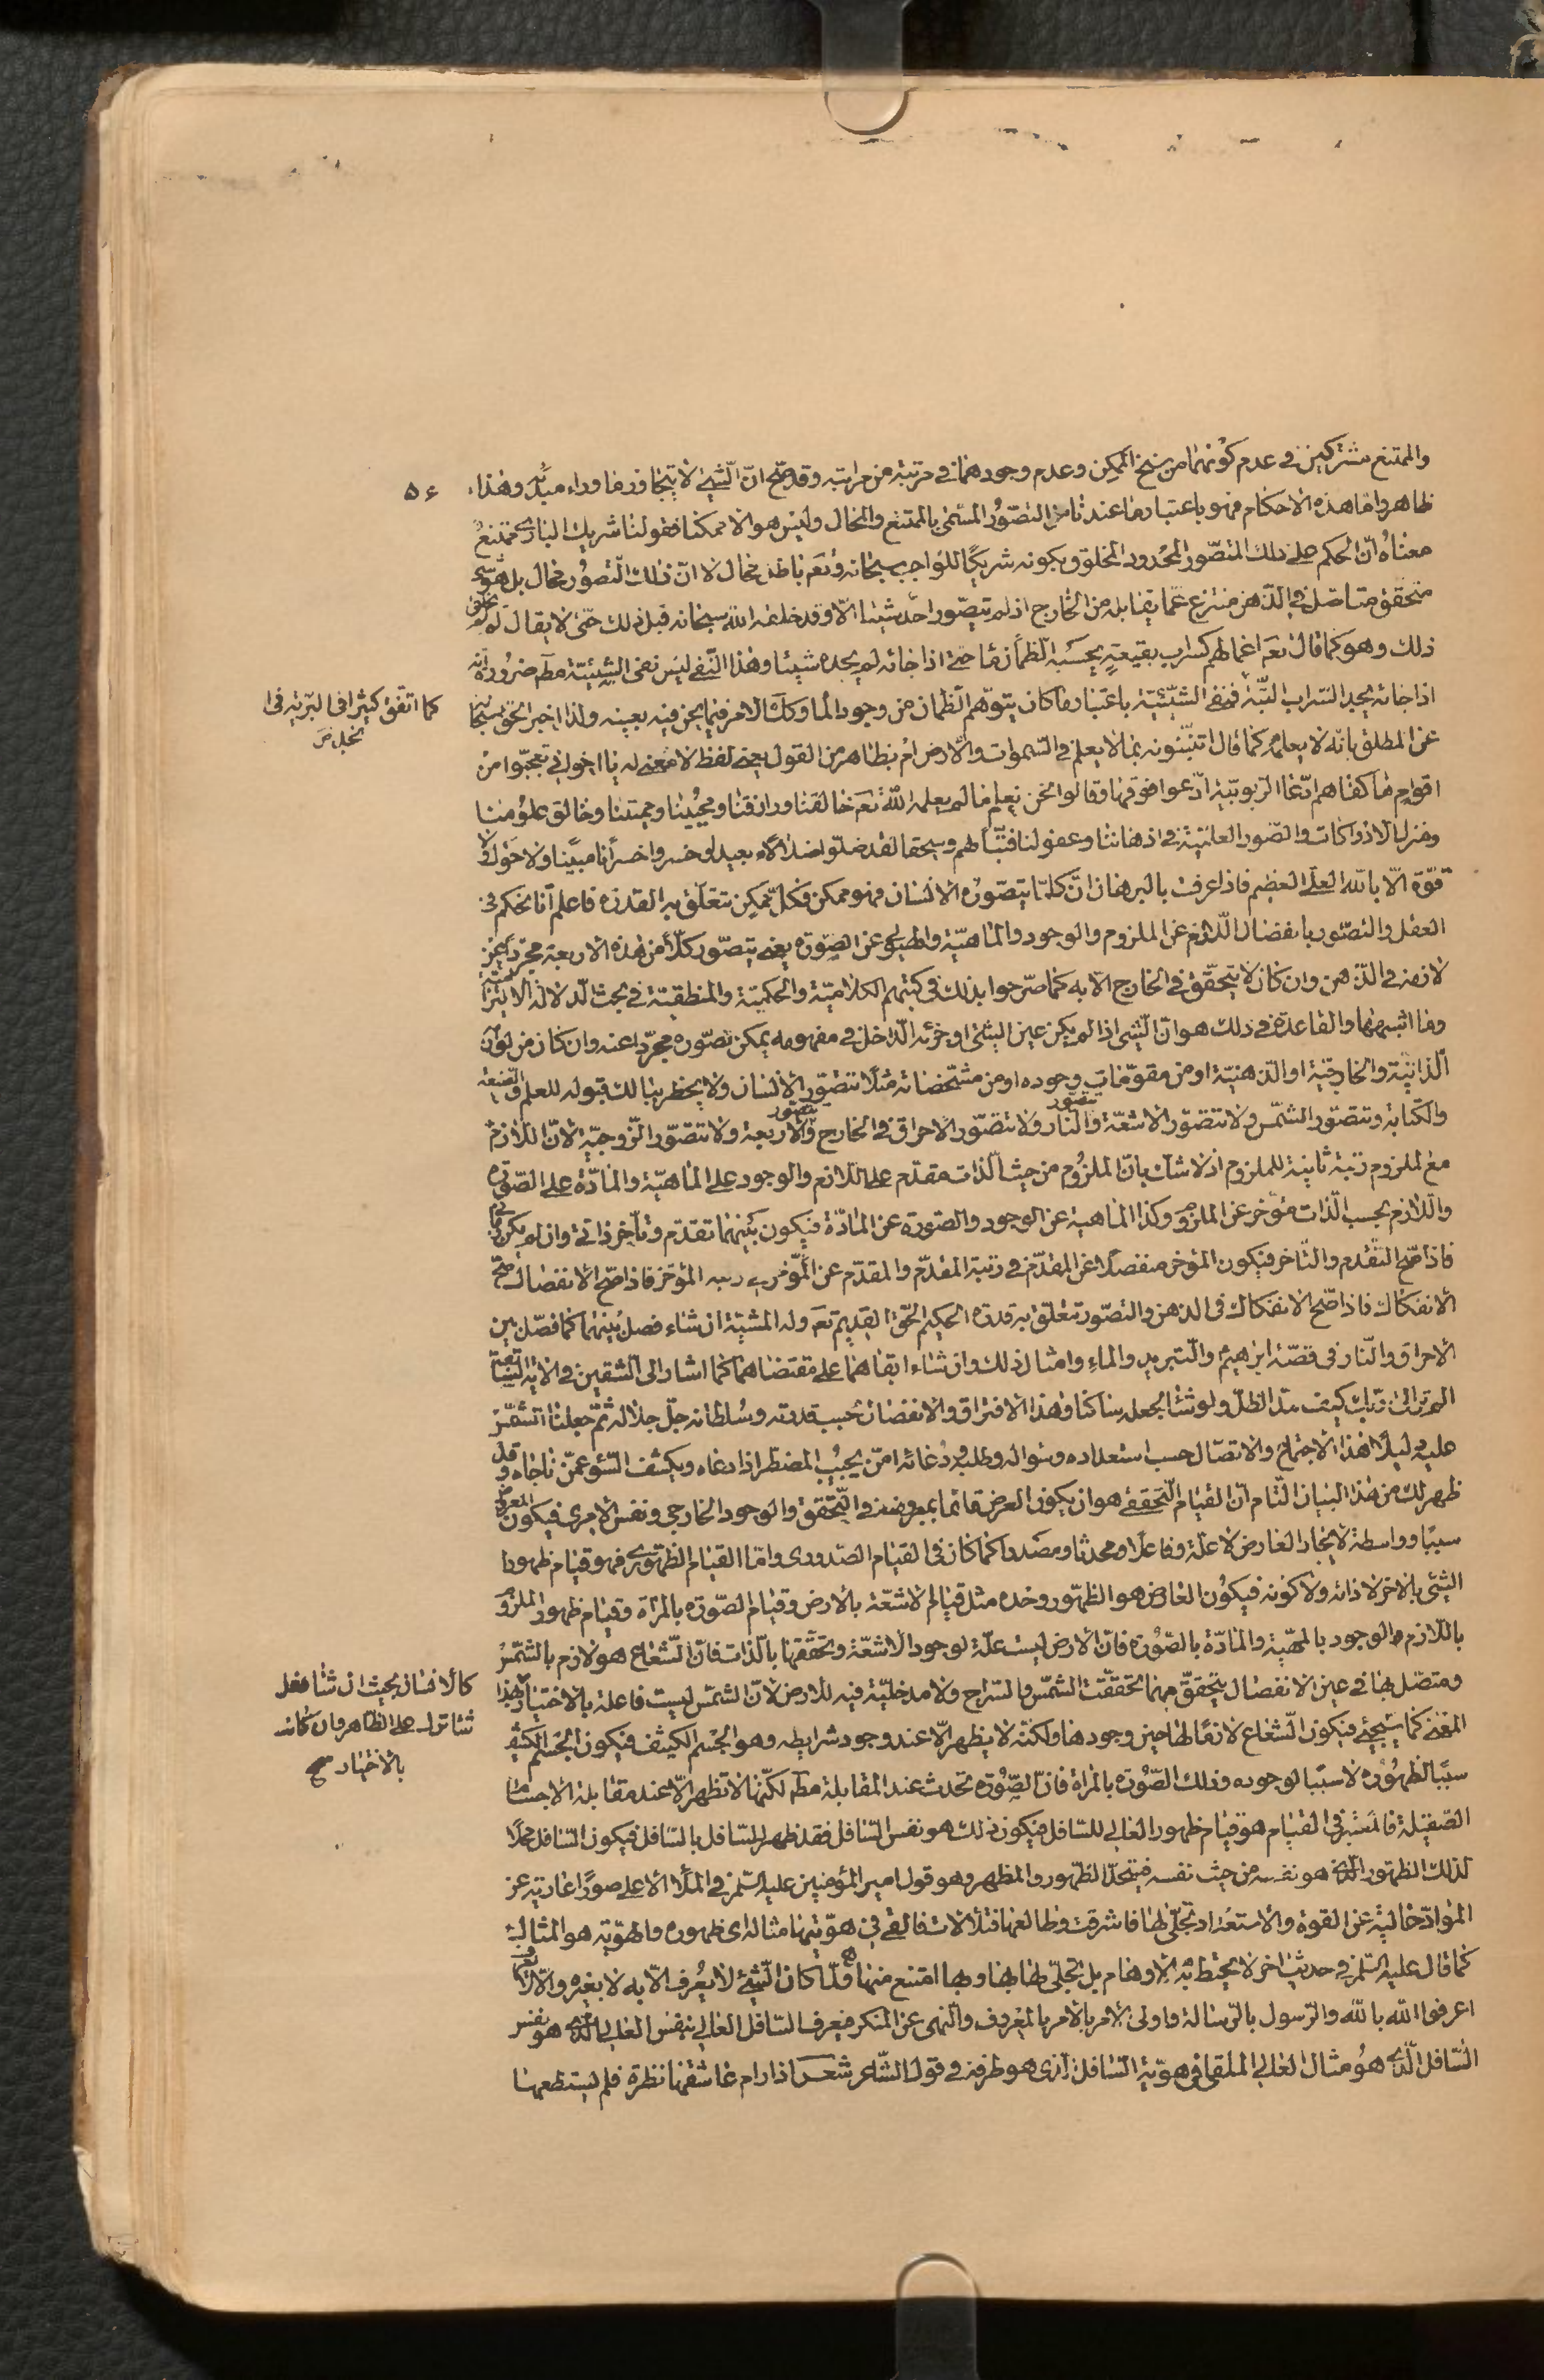 ٥٤
والممتنع مشتركين في عدم كونهما من سنخ الممكن وعدم وجودهما في مرتبة من مراتبه وقد صحّ انّ الشيئ لا يتجاوز ما وراء مبدئه وهذا
ظاهر وامّا هذه الاحكام فهو باعتبار ما عندنا من التصوّر المسمّى بالممتنع والمحال وليس هو الا ممكنا فقولنا شريك الباري ممتنع
معناه انّ الحكم على ذلك المتصّور المحدود المخلوق بكونه شريكا للواجب سبحانه وتعم باطل محال لا انّ ذلك التصوّر محال بل هو شيئ
متحقق متاصّل في الذهن منتزع عما يقابله من الخارج اذ لم يتصّور احد شيئا الّا وقد خلقه الله سبحانه قبل ذلك حتّى لا يقال لم لم يخلق
ذلك وهو كما قال تعم اعمالهم كسراب بقيعة يحسبه الظمأن ماء حتى اذا جائه لم يجده شيئا وهذا النّفي ليس نفي الشيئيّة مطم ضرورة انّه
اذا جائه يجد السّراب البتّة فنفي الشيئيّة باعتبار ما كان يتوّهم الظمان من وجود الماء وكك الامر فيما نحن فيه بعينه ولذا اخبر الحق سبحانه
كما اتّفق كثيرا في البرّية في
عن المطلق بانّه لا يعلمه كما قال اتنبّئونه بما لا يعلم في السّموات والارض ام بظاهر من القول يعني لفظ لا معنى له يا اخواني تعجبّوا من
اقوام ما كفاهم ادّعاء الربوبيّة ادّعوا فوقها وقالوا نحن نعلم ما لم يعلمه الله تعم خالقنا ورازقنا ومحيينا ومميتنا وخالق علومنا
ومنزل الادراكات والصّور العلميّة في اذهاننا وعقولنا فتبّا لهم وسحقا لقد ضلّوا ضلالا بعيدا وخسروا خسرانا مبينا ولا حول ولا
قوّة الّا بالله العليّ العظيم فاذا عرفت بالبرهان انّ كلّما يتصّوره الانسان فهو ممكن فكلّ ممكن تتعلّق به القدرة فاعلم انّا نحكم في
العقل والتصّور بانفصال اللّازم عن الملزوم والوجود والماهيّة والهيولى عن الصورة يعني يتصّور كلّا من هذه الاربعة مجرّدا عن
لازمه في الذهن وان كان لا يتحقّق في الخارج الّا به كما صرّحوا بذلك في كتبهم الكلاميّة والحكميّة والمنطقيّة في بحث الدلالة الالتزاميّة
وما اشبهها والقاعدة في ذلك هو انّ الشيئ اذا لم يكن عين الشيئ او جزئه الدّاخل في مفهومه يمكن تصّوره مجرّدا عنه وان كان من لوازمه
الذاتيّة والخارجيّة او الذهنيّة او من مقوّمات وجوده او من مشخّصاته مثلا تتصّور الانسان ولا يخطر ببالك قبوله للعلم والصنعة
والكتابة وتتصّور الشمس ولا تتصّور الاشعّة والنار ولا تتصّور الاحراق في الخارج والاربعة ولا تتصّور الزّوجيّة لانّ اللّازم
تتصور
تتصور
مع الملزوم رتبة ثانية للملزوم اذ لا شك بانّ الملزوم من حيث الذات مقدّم على اللازم والوجود على الماهيّة والمادّة على الصّورة
واللّازم بحسب الذات مؤخر عن الملزوم وكذا الماهية عن الوجود والصورة عن المادّة فيكون بينهما تقدّم وتأخر ذاتي وان لم يكن
فاذا صحّ التقدم والتّاخر فيكون المؤخر منفصلا عن المقدّم في رتبة المقدّم والمقدّم عن المؤخر في رتبه المؤخر فاذا صحّ الانفصال صحّ
الانفكاك فاذا صحّ الانفكاك في الذهن والتصّور تتعلق به قدرة الحكيم الحقّ القديم تعم وله المشيّة ان شاء فصل بينهما كما فصّل بين
الاحراق والنّار في قصّة ابرهيم والتّبريد والماء وامثال ذلك وان شاء ابقاهما على مقتضاهما كما اشار الى الشقين في الاية الشريفة
الم تر الى ربك كيف مدّ الظلّ ولو شاء لجعله ساكنا وهذا الافتراق والانفصال بحسب قدرته وسلطانه جلّ جلاله ثمّ جعلنا الشمس
عليه دليلا هذا الاجتماع والاتصّال حسب استعداده وسؤاله وطلبه ودعائه امّن يجيب المضطر اذا دعاه ويكشف السّوء عمّن ناجاه وقد
ظهر لك من هذا البيان التّام انّ القيام التحققي هو ان يكون العرض قائما بمعروضه في التّحقق والوجود الخارجي ونفس الامري فيكون المعروض
سببا وواسطة لايجاد العارض لا علّة وفاعلا ومحدثا ومصدرا كما كان في القيام الصّدوري وامّا القيام الظهّوري فهو قيام ظهور
الشئ بالاخر لا ذاته ولا كونه فيكون العارض هو الظهّور وحده مثل قيام الاشعّة بالارض وقيام الصّورة بالمرآة وقيام ظهور الملزوم
باللّازم والوجود بالمهيّة والمادّة بالصّورة فان الارض ليست علّة لوجود الاشعّة وتحقّقها بالذات فانّ الشّعاع هو لازم بالشّمس
ومتصّل بها في عين الانفصال يتحقّق مهما تحقّقت الشّمس والسّراج ولا مدخليّة فيه للارض لانّ الشمس ليست فاعلة بالاختيار بهذا
كالانسان بحيث ان شاء فعل
شاء ترك على الظاهر وان كانت
بالاختيار صح
المعنى كما سيجئ فيكون الشّعاع لازما لها حين وجودها ولكنّه لا يظهر الّا عند وجود شرايطه وهو الجسم الكثيف فيكون الجسم الكثيف
سببا لظهوره لا سببا لوجوده وكذلك الصّورة بالمرآة فانّ الصّورة تحدث عند المقابلة مطم لكنّها لا تظهر الّا عند مقابلة الاجسام
الصّقيلة فالمعتبر في القيام هو قيام ظهور العالي للسّافل فيكون ذلك هو نفس السّافل فقد ظهر للسّافل بالسّافل فيكون السّافل محلّا
لذلك الظهور الذي هو نفسه من حيث نفسه فيتحد الظهّور والمظهر وهو قول امير المؤمنين عليه السّلم في الملأ الاعلى صور عارية عن
الموادّ خالية عن القوة والاستعداد تجلّى لها فاشرقت وطالعها فتلألأت فالقى في هوّيتها مثاله اى ظهوره والهوّية هو المثال
كما قال عليه السّلم في حديث اخر لا تحيط به الاوهام بل تجلّى لها بها وبها امتنع منها ولّما كان الشّيئ لا يعرف الّا به لا بغيره
اعرفوا الله بالله والرّسول بالرّسالة واولى الامر بالامر بالمعروف والنّهى عن المنكر فيعرف السّافل العالي بنفس العالي الذي هو نفس
السّافل الّذي هو مثال العالي الملقى في هوّية السّافل الذي هو طرفه في قول الشّاعر شعر اذا رام عاشقها نظرة فلم يستطعها